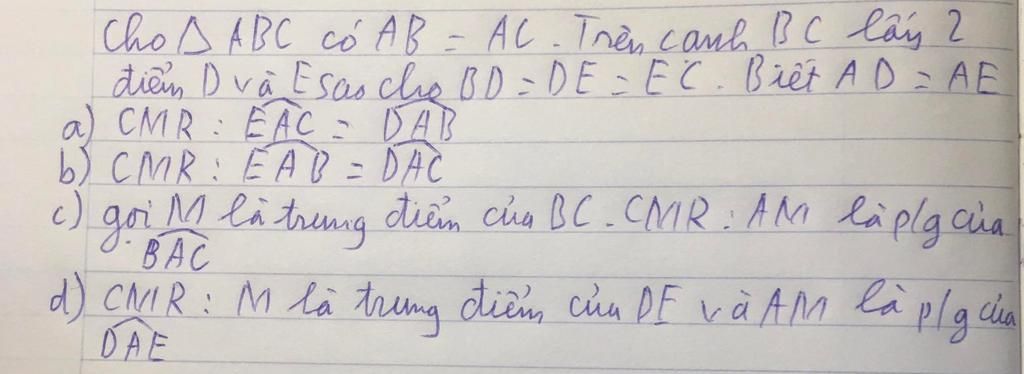 Cho Δ ABC có AB = AC. Trên cạnh BC lấy 2
điểm D và E sao cho BD = DE = EC. Biết AD = AE
a) CMR : EAC = DAB
b) CMR : EAB = DAC
c) gọi M là trung điểm của BC. CMR : AM là p/g của
BAC
d) CMR : M là trung điểm của DE và AM là p/g của
DAE